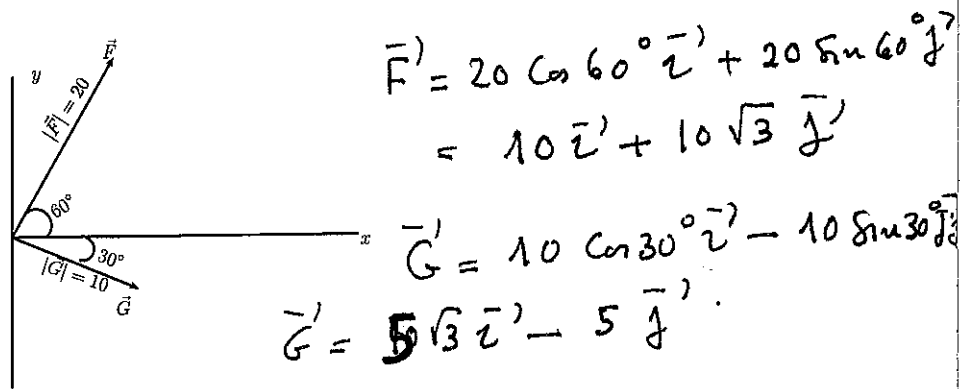 y
F⃗
|F⃗| = 20
60°
x
30°
|G⃗| = 10
G⃗
F⃗ = 20 Cos 60° i⃗ + 20 Sin 60° j⃗
= 10 i⃗ + 10 √3 j⃗
G⃗ = 10 Cos 30° i⃗ − 10 Sin 30° j⃗
G⃗ = 5 √3 i⃗ − 5 j⃗ .